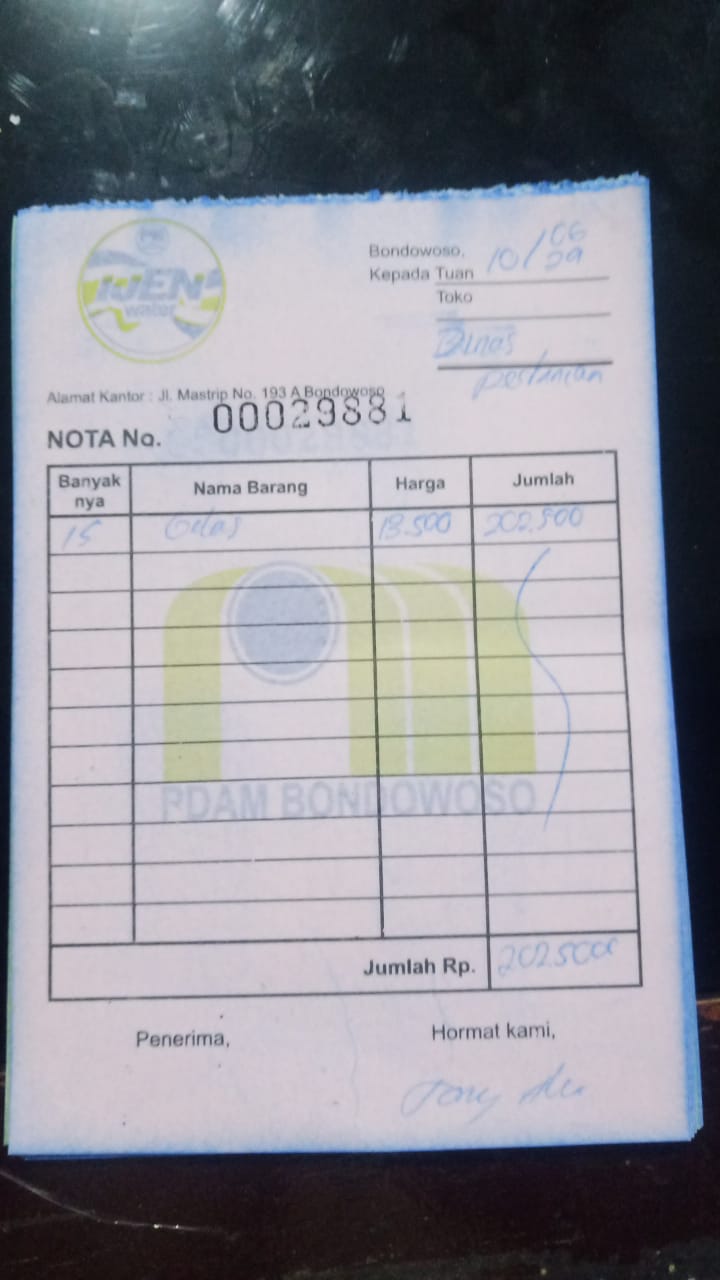 IJEN
water
Bondowoso, 10/06
Kepada Tuan
Toko
Dinas
Pertanian
Alamat Kantor : Jl. Mastrip No. 193 A Bondowoso
NOTA No. 00029881
Banyak nya Nama Barang Harga Jumlah
15 Gelas 13.500 202.500
PDAM BONDOWOSO
Jumlah Rp. 202.500
Penerima, Hormat kami,